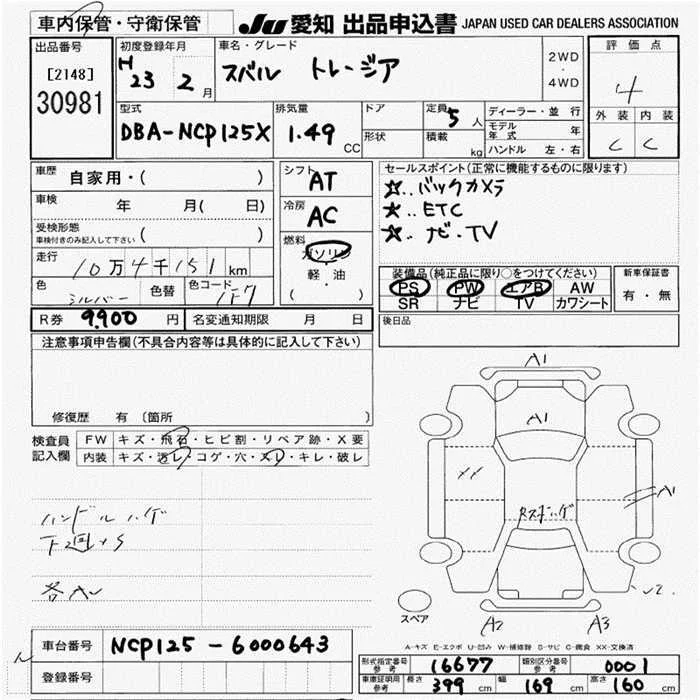 車内保管・守衛保管 JU 愛知 出品申込書 JAPAN USED CAR DEALERS ASSOCIATION
出品番号
[2148]
30981
初度登録年月
H 23 2月
車名・グレード
スバル トレージア
2WD
・
4WD
評価点
4
外装 内装
C C
型式
DBA-NCP125X
排気量
1.49 CC
ドア
形状
定員 5人
積載 kg
ディーラー・並行
モデル年式 年
ハンドル 左・右
車歴 自家用・( )
車検 年 月( 日)
受検形態
車検付きのみ記入して下さい ( )
走行 10万4千151km
色 シルバー 色替 色コード 1F7
シフト AT
冷房 AC
燃料
ガソリン
・
軽・油
( )
セールスポイント(正常に機能するものに限ります)
☆..バックカメラ
☆..ETC
☆..ナビ・TV
装備品(純正品に限り○をつけてください)
PS PW エアB AW
SR ナビ TV カワシート
新車保証書
有・無
R券 9,900円 名変通知期限 月 日
後日品
注意事項申告欄(不具合内容等は具体的に記入して下さい)
修復歴 有 〔箇所 〕
検査員
記入欄
FW キズ・飛石・ヒビ割・リペア跡・X要
内装 キズ・汚レ・コゲ・穴・スレ・キレ・破レ
ハンドルハゲ
下廻りS
各AU
A1
A1
XX
A1
A2
A3
スペア
A-キズ E-エクボ U-凹み W-補修跡 S-サビ C-腐食 XX-交換済
車台番号 NCP125-6000643
登録番号
形式指定番号
参考 16677 類別区分番号
参考 0001
車庫証明用
参考 長さ 399cm 幅 169cm 高さ 160cm